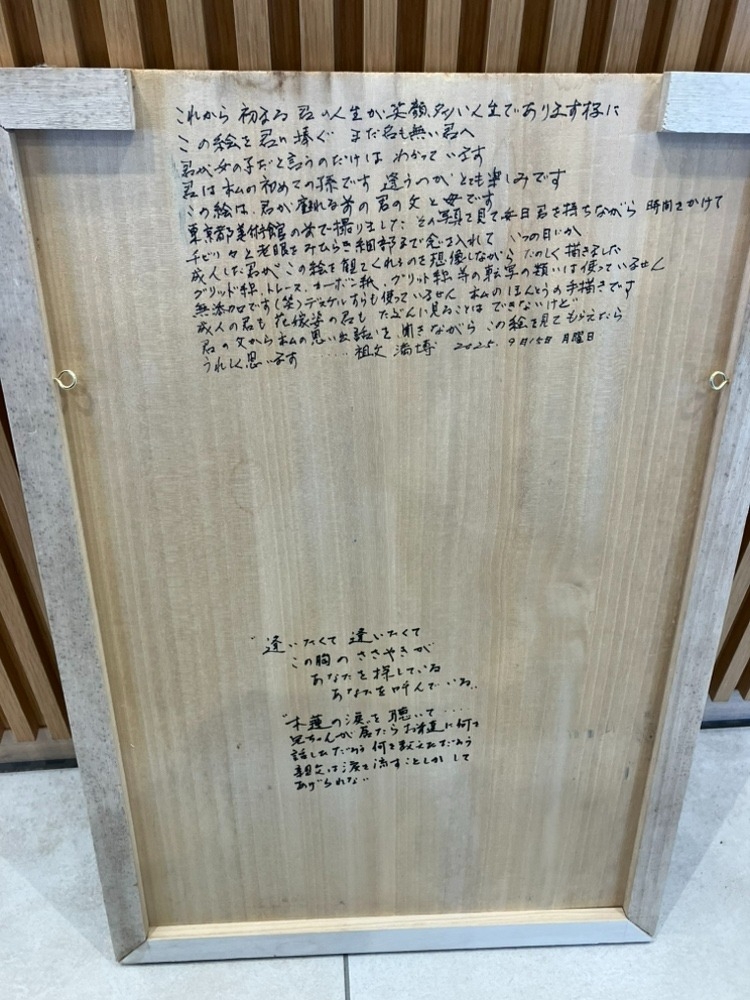 これから 初まる 君の人生が 笑顔、多い人生であります様に
この絵を君に捧ぐ まだ名も無い君へ
君が女の子だと言うのだけは わかっています
君は私の初めての孫です 逢うのがとても楽しみです
この絵は、君が産れる前の君の父と母です
東京都美術館の前で撮りました その写真を見て毎日君を待ちながら 時間をかけて
チビリ々と老眼をみひらき細部まで念を入れて いつの日にか
成人した君がこの絵を観てくれるのを想像しながら たのしく描きました
グリッド線、トレース、カーボン紙、グリット線等の転写の類いは使っていません
無添加です(笑)デスケルすらも使っていません 私のほんとうの手描きです
成人の君も 花嫁姿の君も たぶんに見ることは できないけど
君の父から私の思い出話を 聞きながら この絵を見てもらえたら
うれしく思います ……祖父 満博 2025. 9月15日 月曜日
"逢いたくて 逢いたくて
この胸のささやきが
あなたを探している
あなたを呼んでいる..
"木蓮の涙"を聴いて…
兄ちゃんが居たらお前達に何を
話しただろう 何を教えただろう
親父は涙を流すことしか して
あげられない